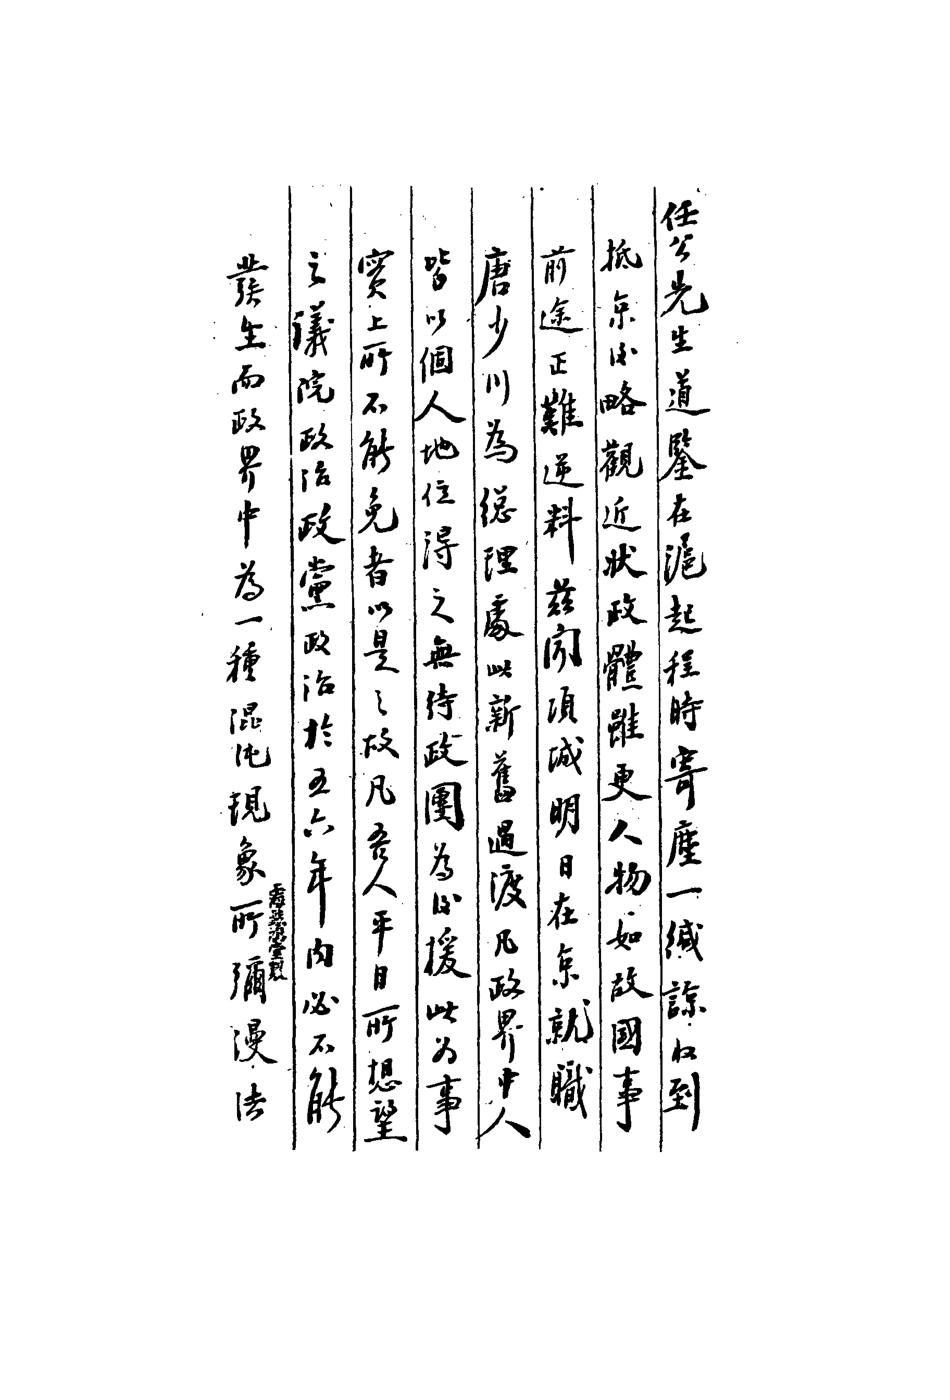 任公先生道鑒在滬起程時寄塵一緘諒收到
抵京後略觀近狀政體雖更人物如故國事
前途正難逆料茲聞項城明日在京就職
唐少川為總理處此新舊過渡凡政界中人
皆以個人地位得之無待政團為後援此為事
實上所不能免者以是之故凡吾人平日所想望
之議院政治政黨政治於五六年內必不能
發生而政界中為一種混沌現象所彌漫法